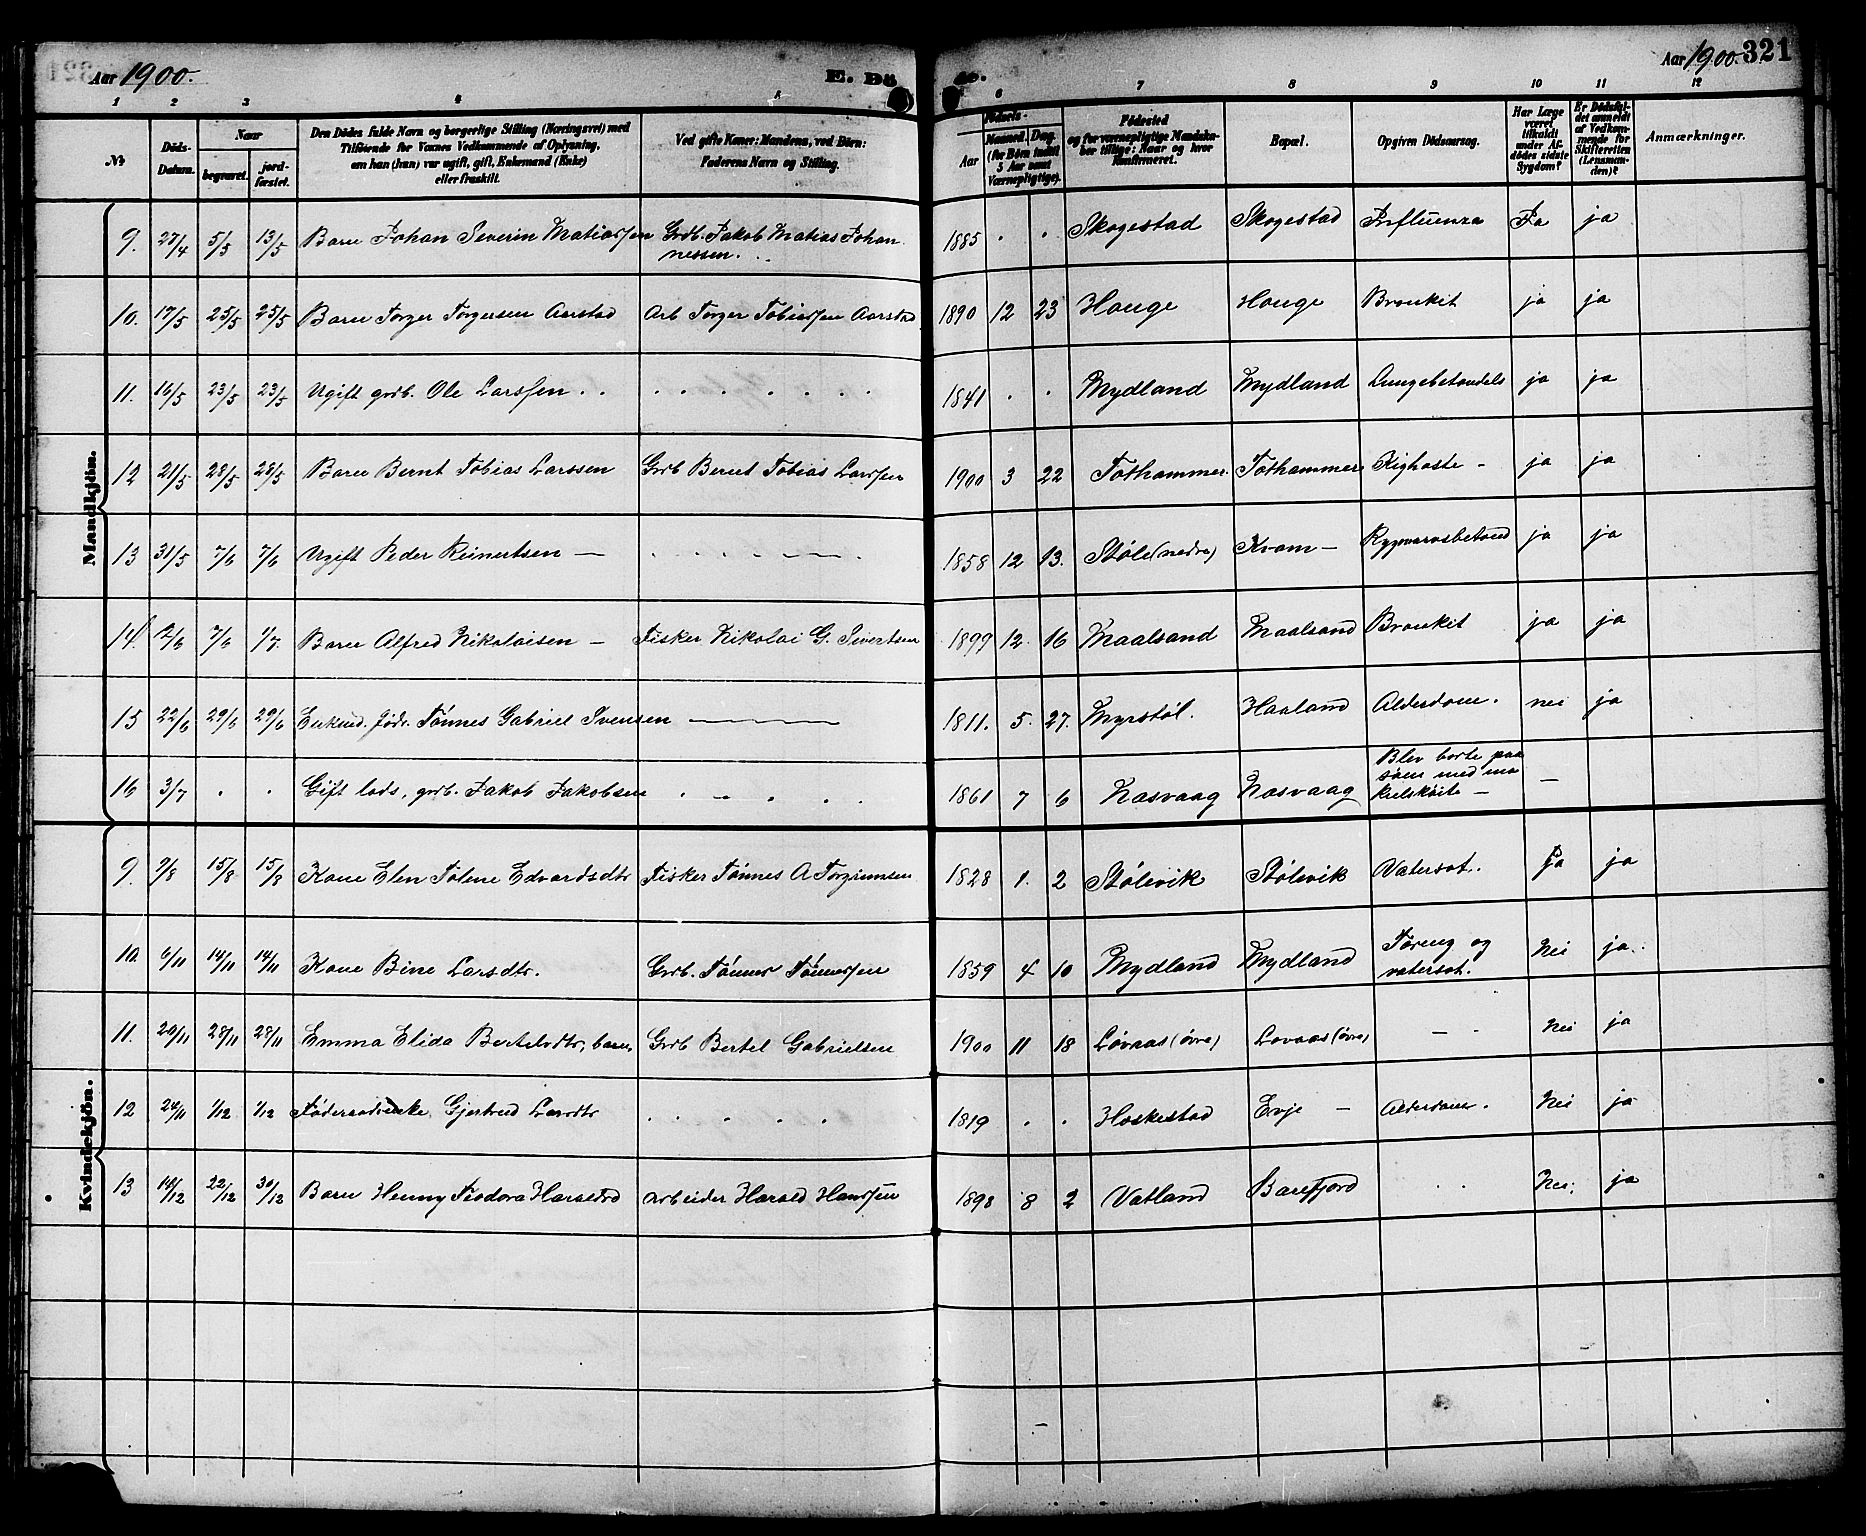 Aar 1900. E. Dö de. Aar 1900. 321
1 2 3 4 5 6 7 8 9 10 11 12
No Döds-Datum. Naar begravet. jordfæstet. Den Dödes fulde Navn og borgerlige Stilling (Næringsvei) med Tilföiende for Voxnes Vedkommende af Oplysning, om han (hun) var ugift, gift, Enkemand (Enke) eller fraskilt. Ved gifte Koner: Mandens, ved Börn: Faderens Navn og Stilling. Födsels- Aar Maaned. Dag. (for Börn indtil 5 Aar samt Værnepligtige). Födested og for værnepligtige Mandskaber tillige: Naar og hvor Konfirmeret. Bopæl. Opgiven Dödsaarsag. Har Læge været tilkaldt under Afdödes sidste Sygdom? Er Dödsfaldet anmeldt af Vedkommende for Skifteretten (Lensmanden)? Anmærkninger.
Mandkjön.
9. 27/4 5/5 13/5 Barn Johan Severin Matiassen Grdb. Jakob Matias Johannessen. 1885 . . Skogestad Skogestad Influenza Ja ja
10. 17/5 25/5 25/5 Barn Torger Torgersen Aarstad Arb Torger Tobiassen Aarstad 1890 12 23 Hauge Hauge Bronkit ja ja
11. 16/5 23/5 23/5 Ugift grdb. Ole Larssen . . . . . . . . . 1841 . . Mydland Mydland Lungebetændels ja ja
12 21/5 28/5 28/5 Barn Bernt Tobias Larssen Grdb Bernt Tobias Larssen 1900 3 22 Tothammer. Tothammer Kighoste - ja ja
13 31/5 7/6 7/6 Ugift Peder Reinertsen — . . . . — . 1858 12 13. Støle (nedre) Kvam - Rygmarvsbetænd ja ja
14. 2/6 7/6 1/7. Barn Alfred Nikolaisen - Fisker Nikolai G. Sivertsen 1899 12. 16 Maalsand Maalsand Bronkit ja ja
15 22/6 29/6 29/6 Enkmd. födr. Tönnes Gabriel Svensen — 1811. 5. 27. Myrstöl. Haaland Alderdom. nei ja
16 3/7 . . Gift lods, grdb. Jakob Jakobsen . - . . . 1861 7 6 Næsvaag Næsvaag Blev borte paa söen med makrelsköite - —
Kvindekjön.
9. 9/8 15/8 15/8 Kone Elen Tolene Edvardsdtr Fisker Tönnes A Torgiemsen 1828 1. 2 Stölevik Stölevik Vatersot. ja ja
10 6/11 14/11 14/11 Kone Bine Larsdtr. Grdb. Tönnes Tönnessen 1859 4 10 Mydland Mydland Tæring og vatersot. Nei ja.
11. 20/11 28/11 28/11 Emma Elida Bertelsdtr, barn Grdb Bertel Gabrielsen 1900 11 18 Løvaas (övre) Lovaas (övre) — . Nei ja
12 24/11 1/12 1/12 Föderaadsenke Gjertrud Larsdtr . . . . . 1819 . . Hæskestad Evje — Alderdom. Nei ja
13 14/12 22/12 30/12 Barn Henny Teodora Haraldsd Arbeider Harald Hanssen 1898 8 2 Vatland Barefjord . . Nei. ja